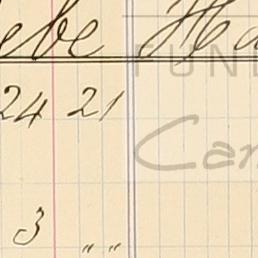 ebe Ha
FUN
24 21 Can
3 " "